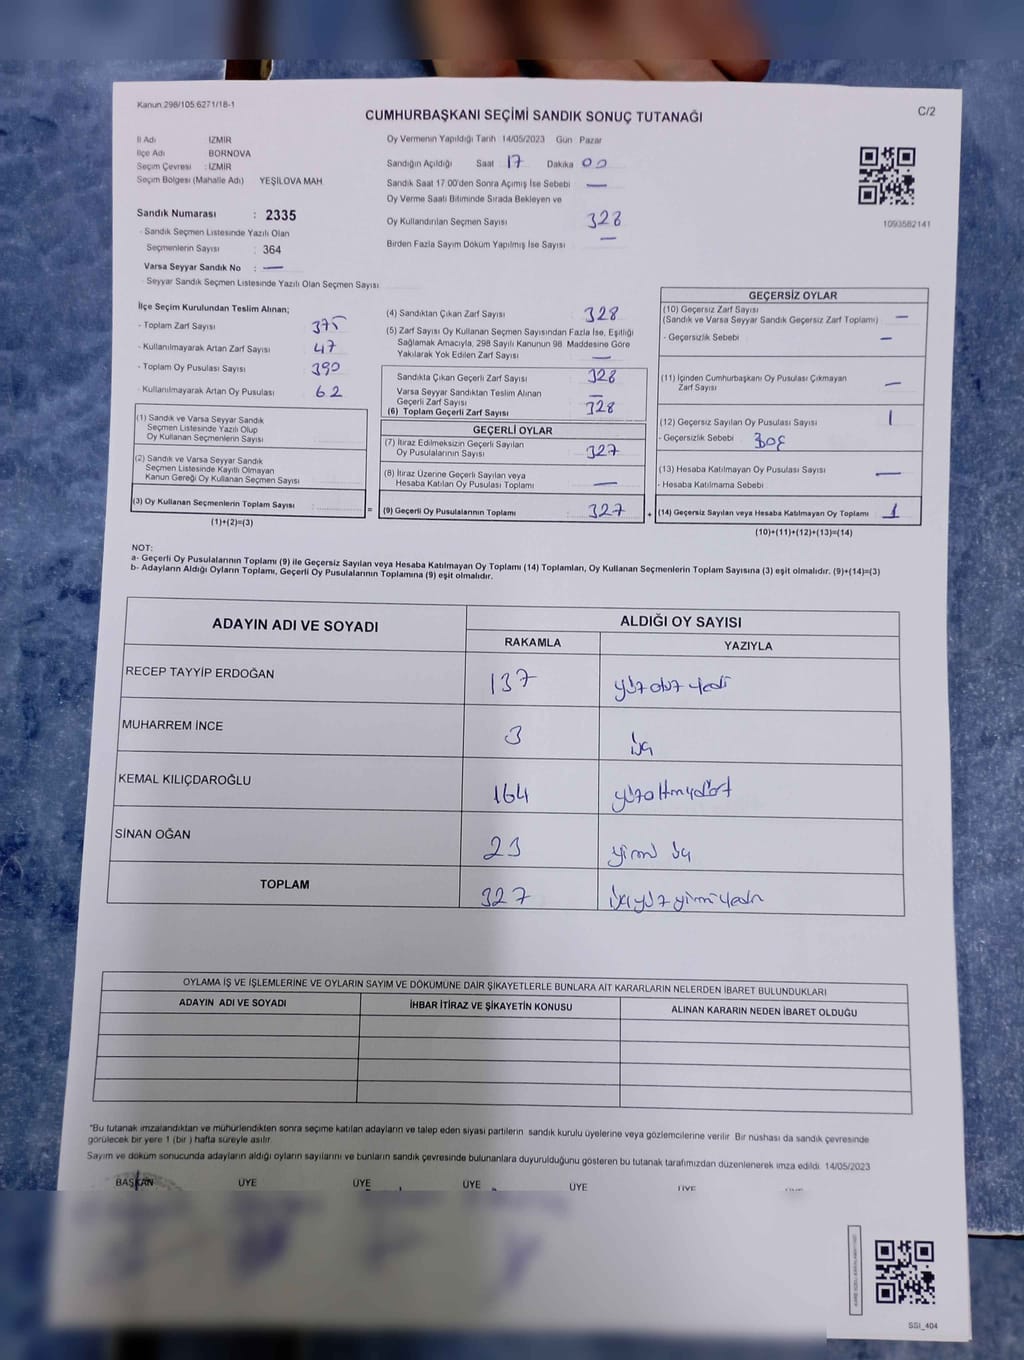 Kanun 298/105 6271/18-1
CUMHURBAŞKANI SEÇİMİ SANDIK SONUÇ TUTANAĞI
C/2
İl Adı İZMİR
İlçe Adı BORNOVA
Seçim Çevresi : İZMİR
Seçim Bölgesi (Mahalle Adı) YEŞİLOVA MAH.
Sandık Numarası : 2335
- Sandık Seçmen Listesinde Yazılı Olan
Seçmenlerin Sayısı : 364
Varsa Seyyar Sandık No : —
- Seyyar Sandık Seçmen Listesinde Yazılı Olan Seçmen Sayısı
Oy Vermenin Yapıldığı Tarih 14/05/2023 Gün Pazar
Sandığın Açıldığı Saat 17 Dakika 00
Sandık Saat 17.00'den Sonra Açımış İse Sebebi —
Oy Verme Saati Bitiminde Sırada Bekleyen ve
Oy Kullandırılan Seçmen Sayısı 328
Birden Fazla Sayım Döküm Yapılmış İse Sayısı —
1093582141
İlçe Seçim Kurulundan Teslim Alınan;
- Toplam Zarf Sayısı 375
- Kullanılmayarak Artan Zarf Sayısı 47
- Toplam Oy Pusulası Sayısı 390
- Kullanılmayarak Artan Oy Pusulası 62
(1) Sandık ve Varsa Seyyar Sandık
Seçmen Listesinde Yazılı Olup
Oy Kullanan Seçmenlerin Sayısı
(2) Sandık ve Varsa Seyyar Sandık
Seçmen Listesinde Kayıtlı Olmayan
Kanun Gereği Oy Kullanan Seçmen Sayısı
(3) Oy Kullanan Seçmenlerin Toplam Sayısı
(1)+(2)=(3)
(4) Sandıktan Çıkan Zarf Sayısı 328
(5) Zarf Sayısı Oy Kullanan Seçmen Sayısından Fazla İse, Eşitliği
Sağlamak Amacıyla, 298 Sayılı Kanunun 98. Maddesine Göre
Yakılarak Yok Edilen Zarf Sayısı —
Sandıkta Çıkan Geçerli Zarf Sayısı 328
Varsa Seyyar Sandıktan Teslim Alınan
Geçerli Zarf Sayısı —
(6) Toplam Geçerli Zarf Sayısı 328
GEÇERLİ OYLAR
(7) İtiraz Edilmeksizin Geçerli Sayılan
Oy Pusulalarının Sayısı 327
(8) İtiraz Üzerine Geçerli Sayılan veya
Hesaba Katılan Oy Pusulası Toplamı —
= (9) Geçerli Oy Pusulalarının Toplamı 327 +
GEÇERSİZ OYLAR
(10) Geçersiz Zarf Sayısı
(Sandık ve Varsa Seyyar Sandık Geçersiz Zarf Toplamı) —
- Geçersizlik Sebebi —
(11) İçinden Cumhurbaşkanı Oy Pusulası Çıkmayan
Zarf Sayısı —
(12) Geçersiz Sayılan Oy Pusulası Sayısı 1
- Geçersizlik Sebebi
(13) Hesaba Katılmayan Oy Pusulası Sayısı —
- Hesaba Katılmama Sebebi
(14) Geçersiz Sayılan veya Hesaba Katılmayan Oy Toplamı 1
(10)+(11)+(12)+(13)=(14)
NOT:
a- Geçerli Oy Pusulalarının Toplamı (9) ile Geçersiz Sayılan veya Hesaba Katılmayan Oy Toplamı (14) Toplamları, Oy Kullanan Seçmenlerin Toplam Sayısına (3) eşit olmalıdır. (9)+(14)=(3)
b- Adayların Aldığı Oyların Toplamı, Geçerli Oy Pusulalarının Toplamına (9) eşit olmalıdır.
ADAYIN ADI VE SOYADI
ALDIĞI OY SAYISI
RAKAMLA YAZIYLA
RECEP TAYYİP ERDOĞAN 137 yüz otuz yedi
MUHARREM İNCE 3 üç
KEMAL KILIÇDAROĞLU 164 yüzaltmışdört
SİNAN OĞAN 23 yirmi üç
TOPLAM 327 üçyüz yirmi yedi
OYLAMA İŞ VE İŞLEMLERİNE VE OYLARIN SAYIM VE DÖKÜMÜNE DAİR ŞİKAYETLERLE BUNLARA AİT KARARLARIN NELERDEN İBARET BULUNDUKLARI
ADAYIN ADI VE SOYADI İHBAR İTİRAZ VE ŞİKAYETİN KONUSU ALINAN KARARIN NEDEN İBARET OLDUĞU
"Bu tutanak imzalandıktan ve mühürlendikten sonra seçime katılan adayların ve talep eden siyasi partilerin sandık kurulu üyelerine veya gözlemcilerine verilir. Bir nüshası da sandık çevresinde
görülecek bir yere 1 (bir ) hafta süreyle asılır.
Sayım ve döküm sonucunda adayların aldığı oyların sayılarını ve bunların sandık çevresinde bulunanlara duyurulduğunu gösteren bu tutanak tarafımızdan düzenlenerek imza edildi. 14/05/2023
BAŞKAN ÜYE ÜYE ÜYE ÜYE ÜYE
SSI_404